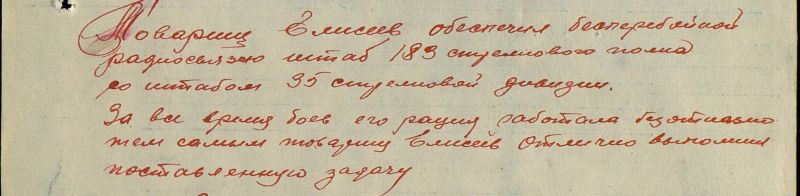 Товарищ Елисеев обеспечил бесперебойной
радиосвязью штаб 183 стрелкового полка
со штабом 35 стрелковой дивизии.
За все время боев его рация работала безотказно
тем самым товарищ Елисеев отлично выполнил
поставленную задачу